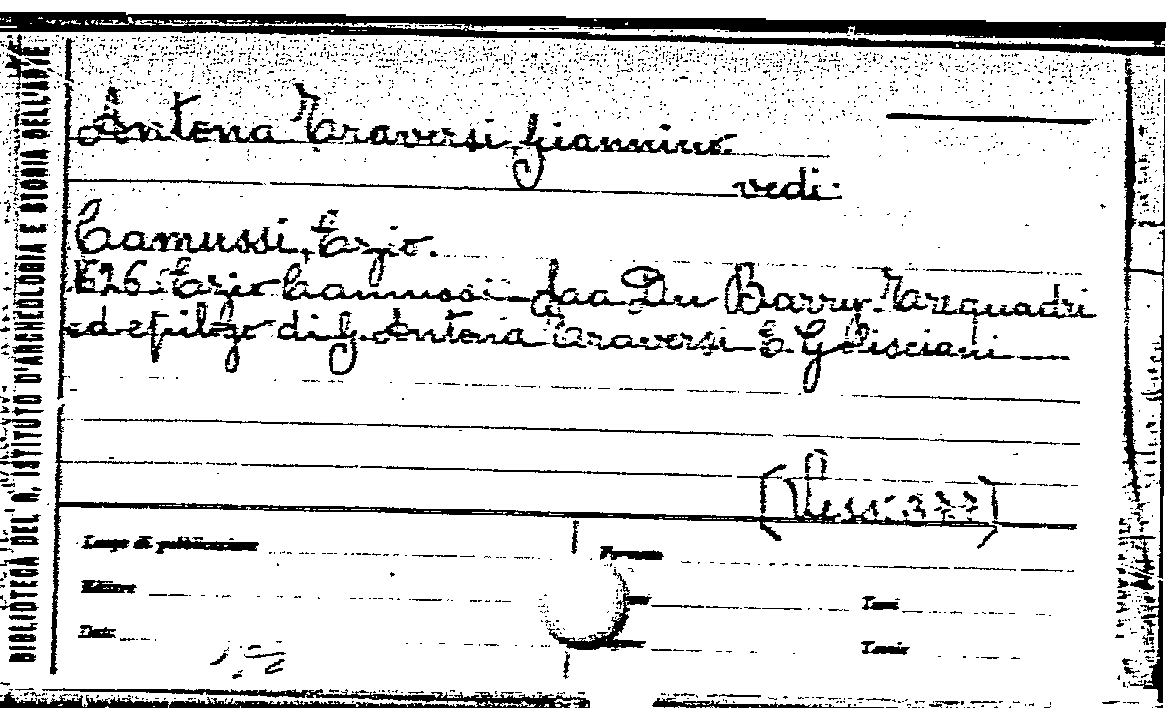 BIBLIOTECA DEL R. ISTITUTO D'ARCHEOLOGIA E STORIA DELL'ARTE
Antona Traversi Giannino
vedi:
Camussi, Ezio.
Ezio Camussi - La Du Barry. Tre quadri
ed epilogo di G. Antona Traversi E. Golisciani
Luogo di pubblicazione
Formato
Editore
Tomi
Data
Tavole